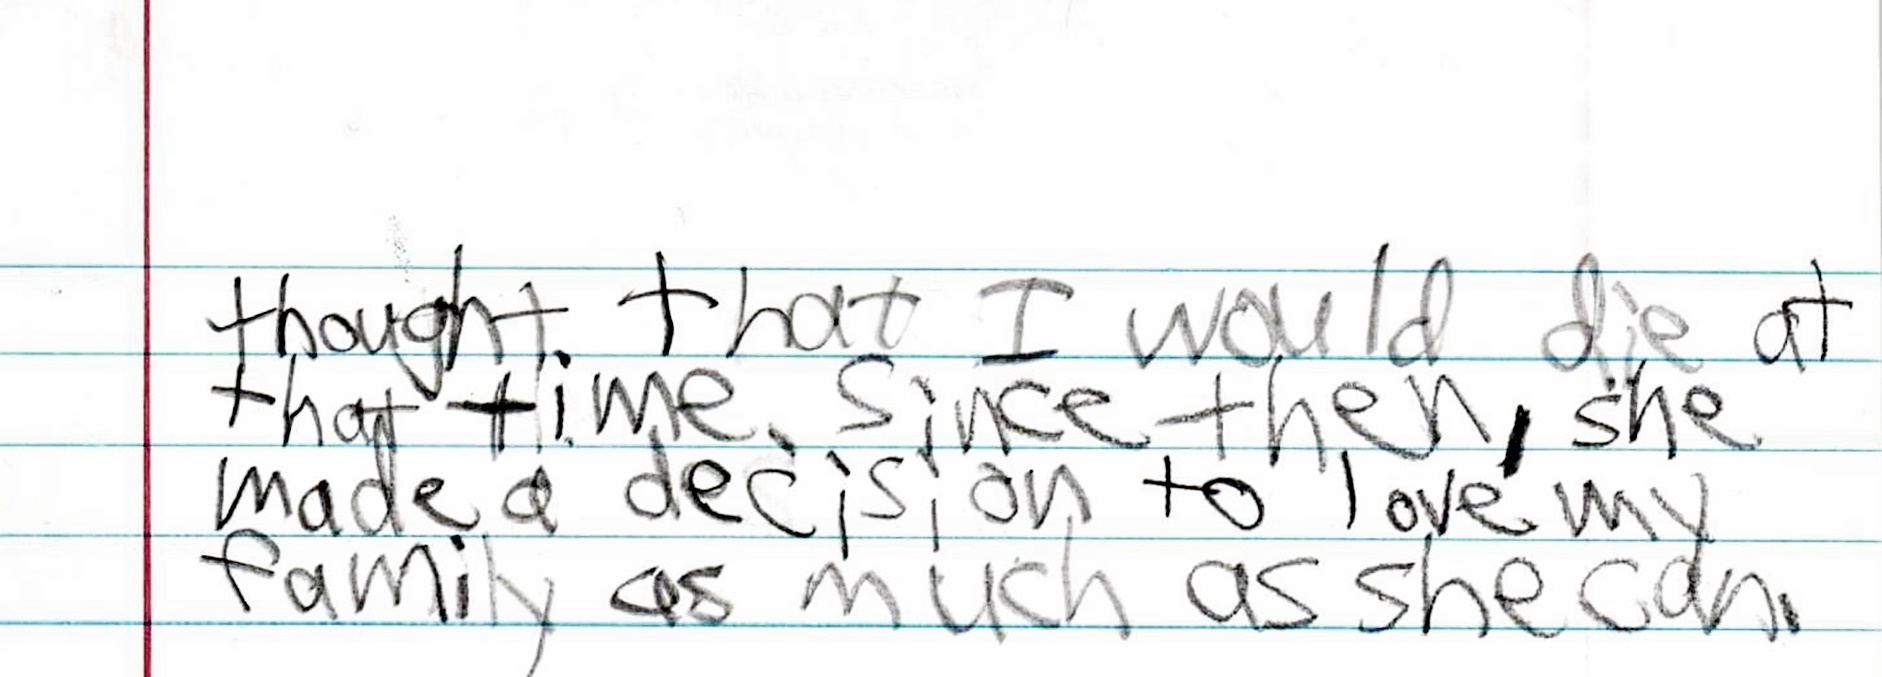 thought that I would die at
that time. Since then, she
made a decision to love my
family as much as she can.